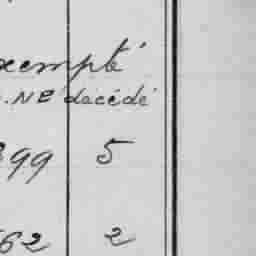 exempté
. NE décédé
899 5
62 2